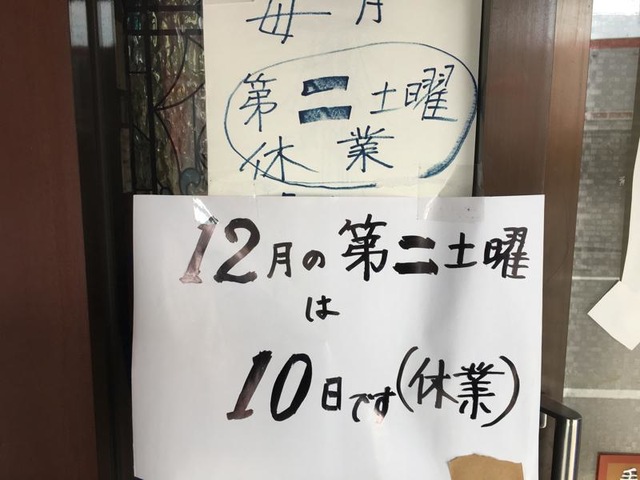 毎月
第二土曜
休業
12月の第二土曜
は
10日です(休業)
手